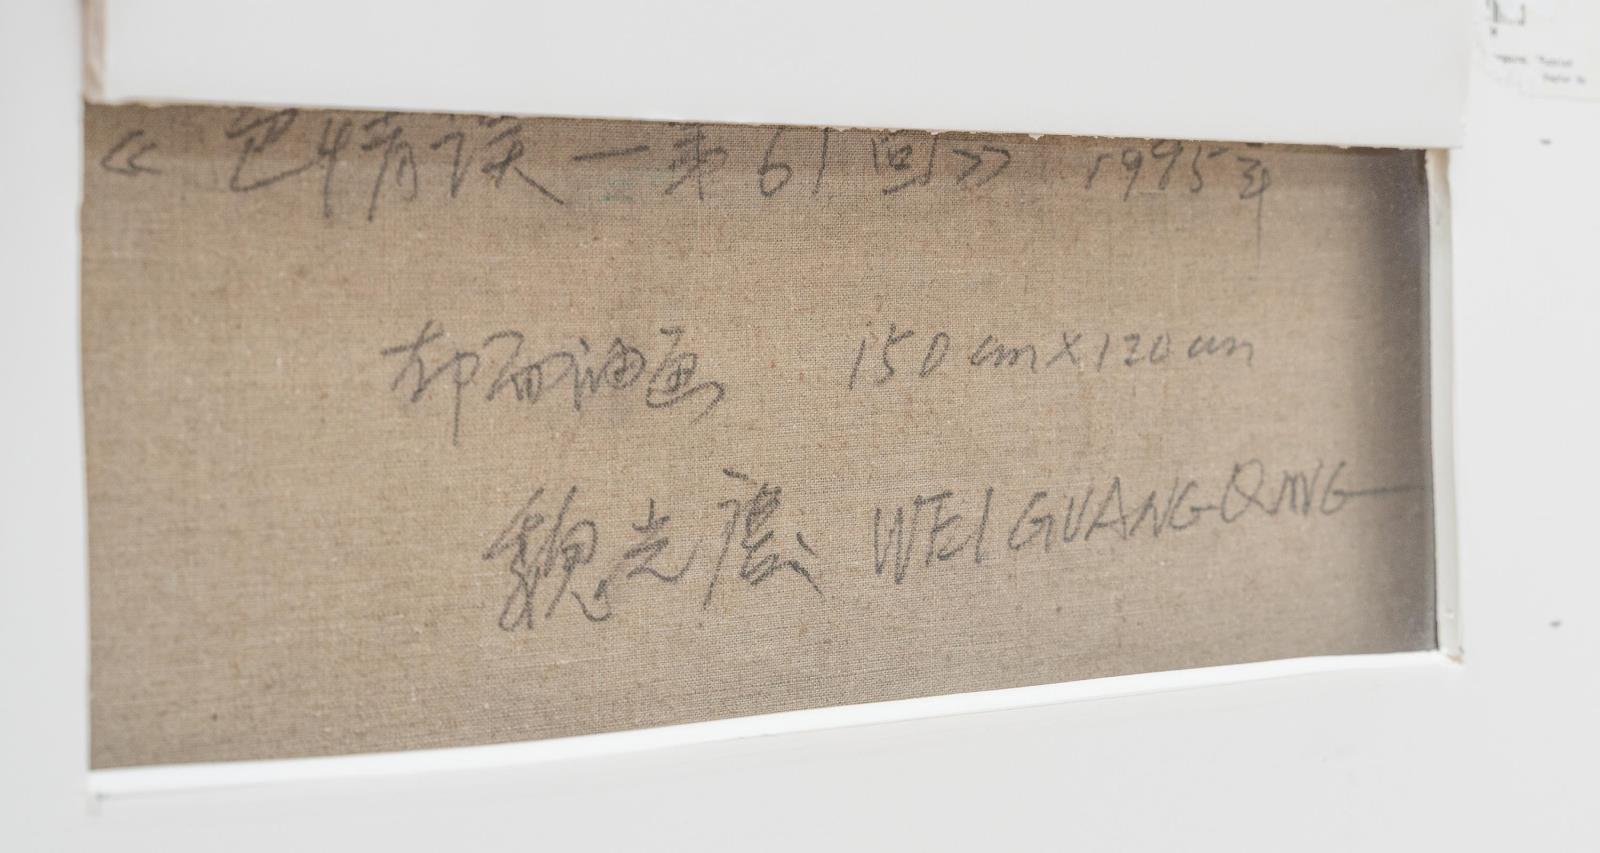 《色情误一第61回》 1995年
布面油画 150cm×120cm
魏光庆 WEI GUANGQING